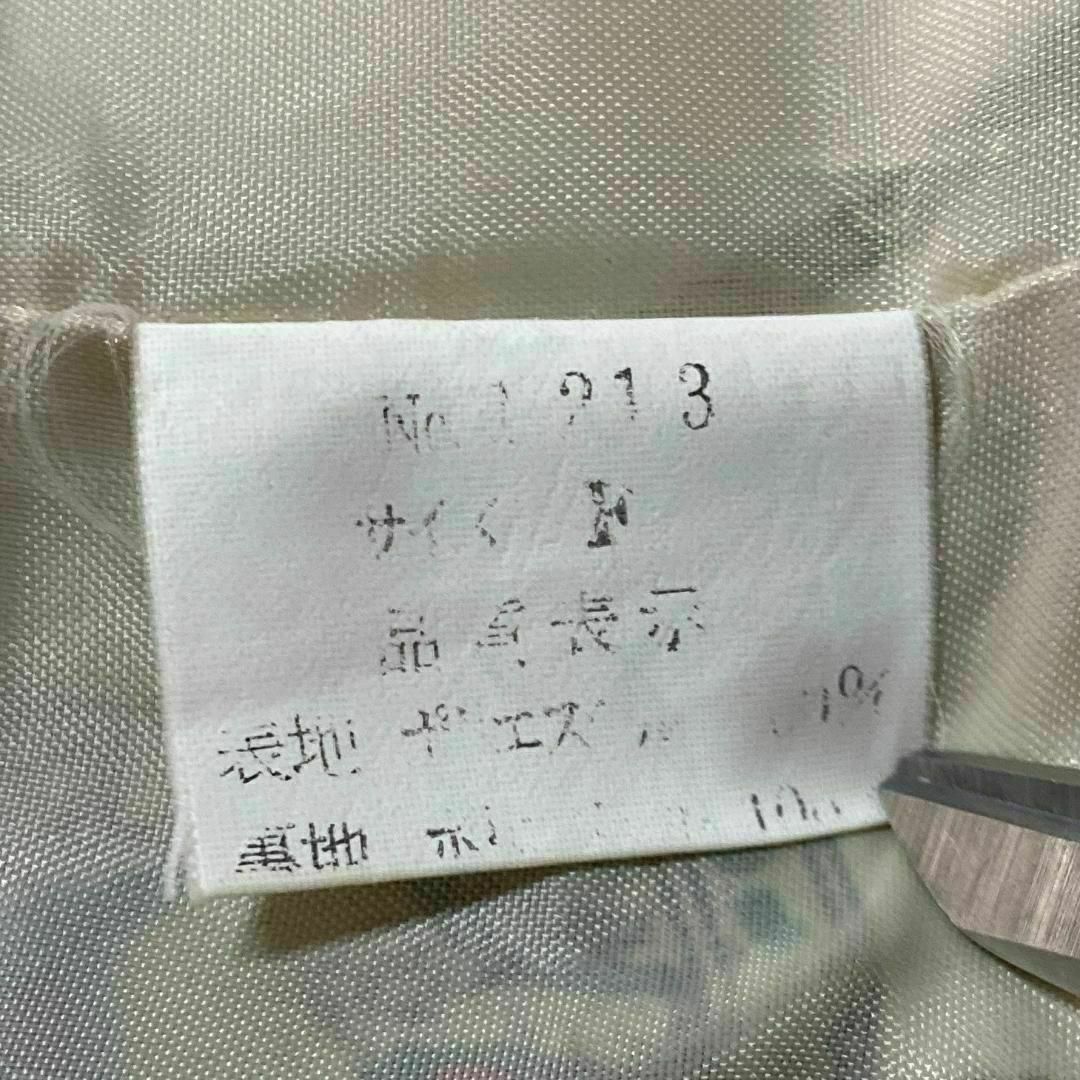 No.1213
サイズ F
品質表示
表地 ポリエステル
裏地